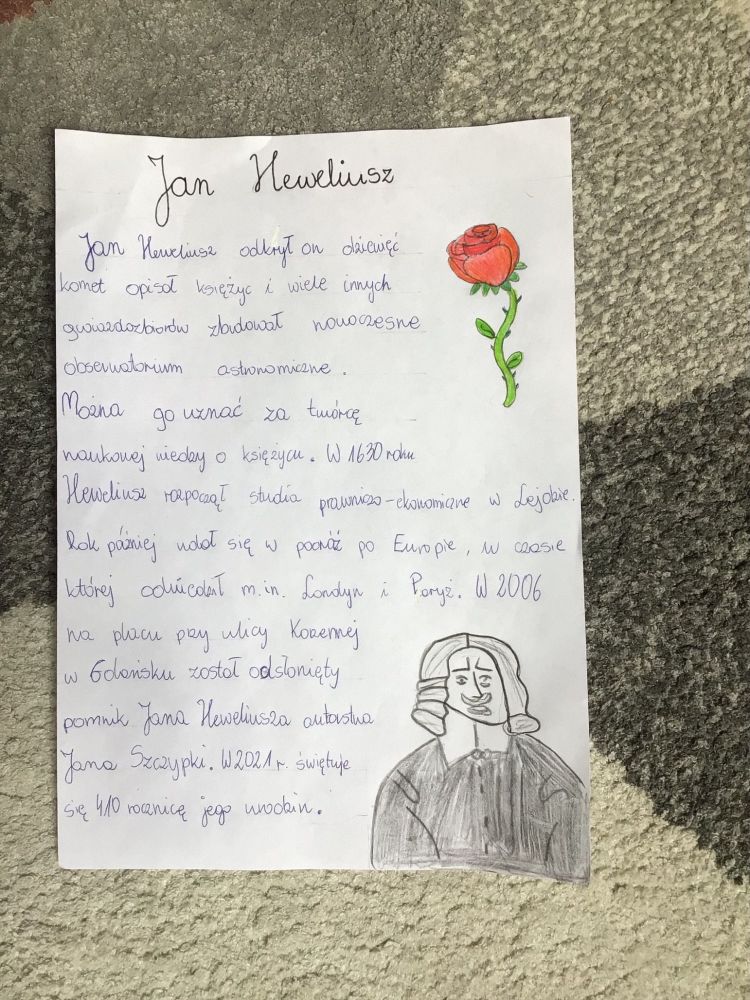 Jan Heweliusz
Jan Heweliusz odkrył on dziewięć
komet opisał księżyc i wiele innych
gwiazdozbiorów zbudował nowoczesne
obserwatorium astronomiczne.
Można go uznać za twórcę
naukowej wiedzy o księżycu. W 1630 roku
Heweliusz rozpoczął studia prawniczo-ekonomiczne w Lejdzie.
Rok później udał się w podróż po Europie, w czasie
której odwiedzał m.in. Londyn i Paryż. W 2006
na placu przy ulicy Korzennej
w Gdańsku został odsłonięty
pomnik Jana Heweliusza autorstwa
Jana Szczypki. W 2021 r. świętuje
się 410 rocznicę jego urodzin.